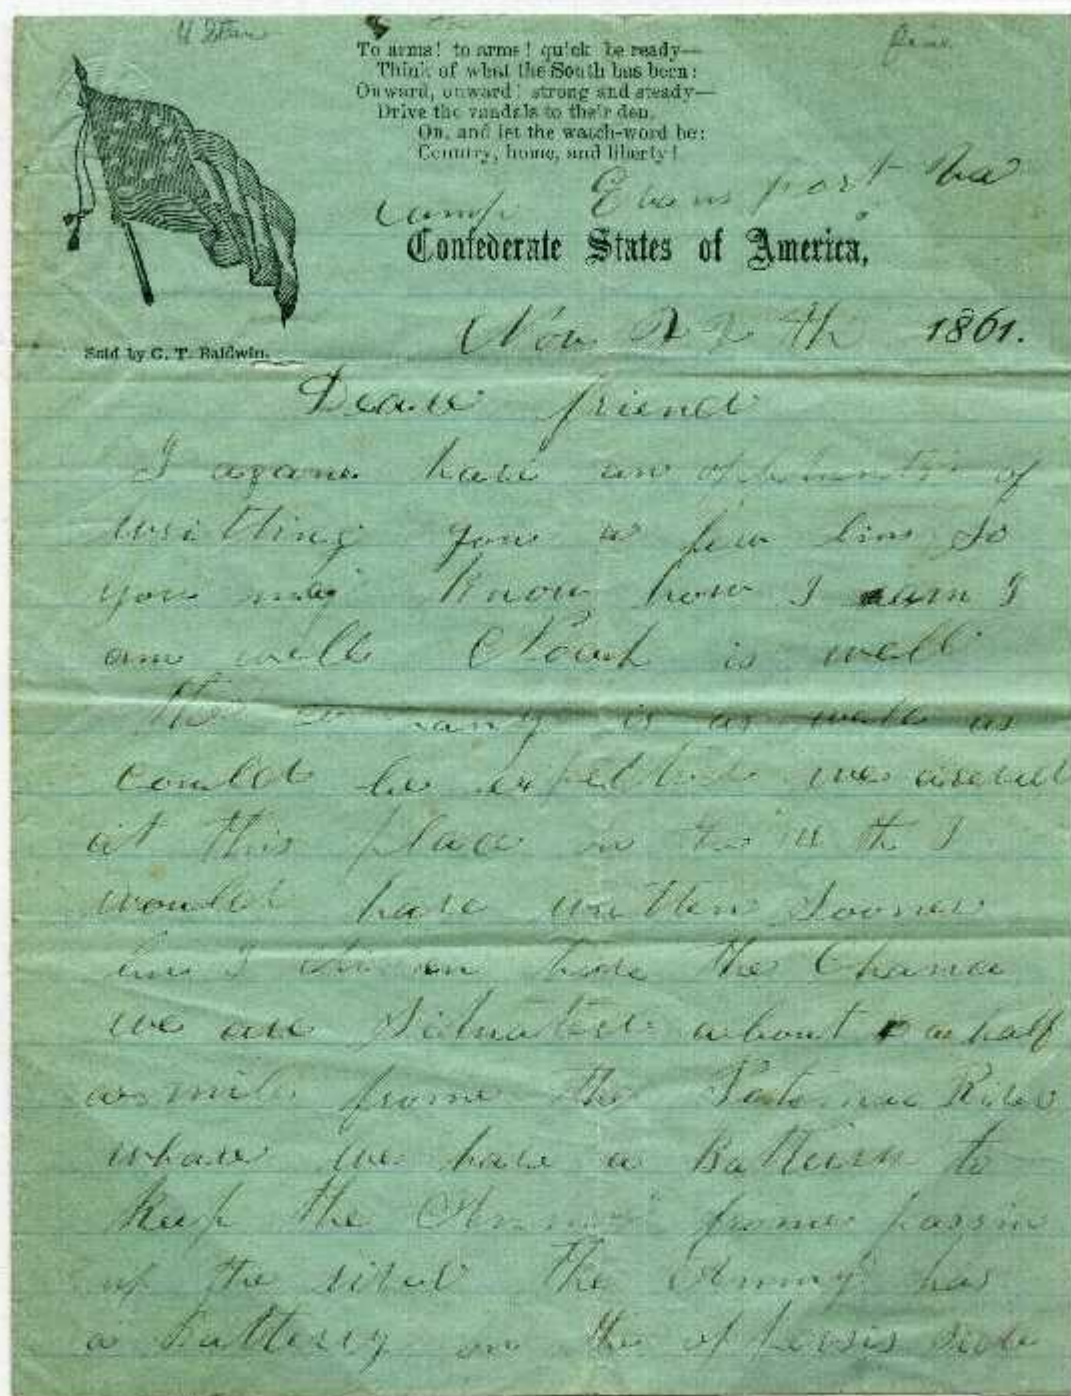 To arms! to arms! quick be ready—
Think of what the South has been:
Onward, onward! strong and steady—
Drive the vandals to their den.
On, and let the watch-word be:
Country, home, and liberty!
camp Evans port Va
Confederate States of America,
Nov 22th 1861.
Sold by C. T. Baldwin.
Deare friend
I agane have an of
writting you a few lins So
you may Know how I am I
am well Noah is well
the is as well as
could be we
at this place on the th I
would have written Sooner
but I the Chance
we are Situated about a half
a mile frome the River
whare we have a to
Keep the frome passin
up the the has
a battery on the side